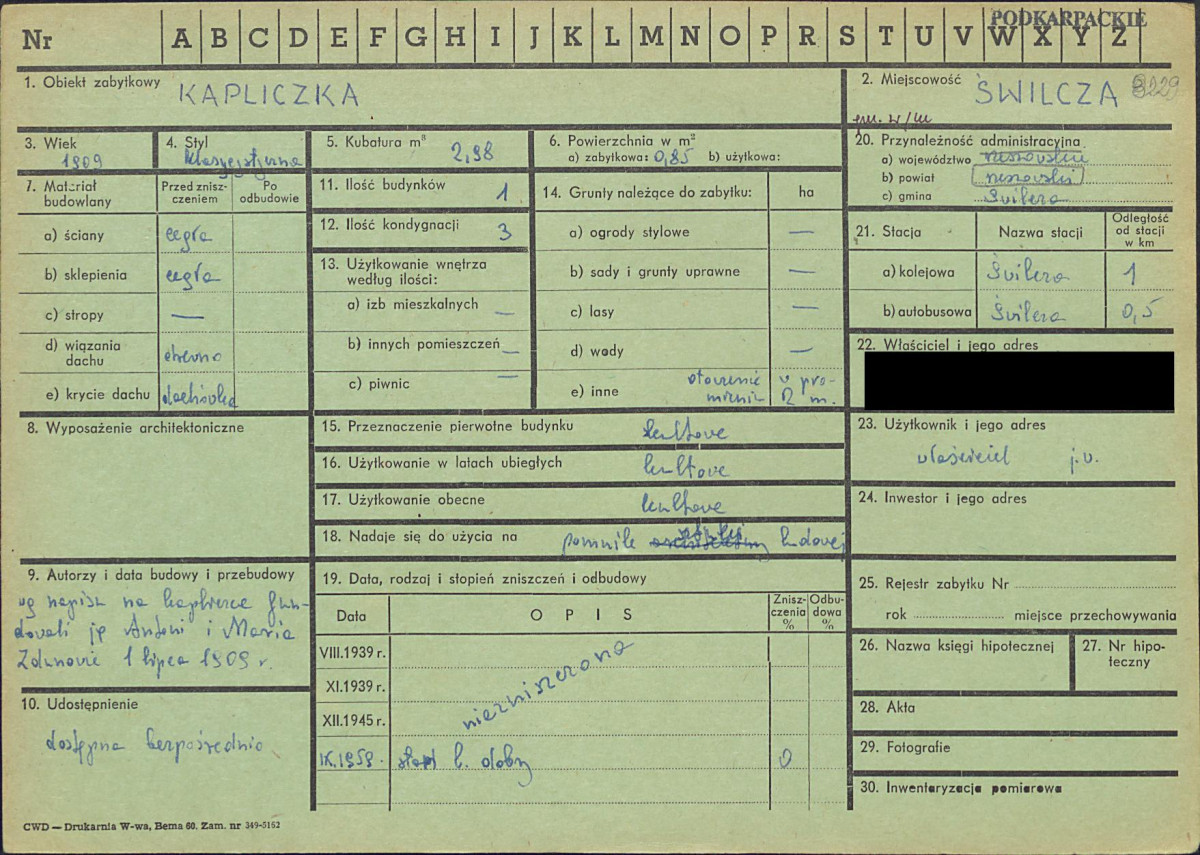 PODKARPACKIE
Nr A B C D E F G H I J K L M N O P R S T U V W X Y Z
1. Obiekt zabytkowy KAPLICZKA
2. Miejscowość ŚWILCZA 3229
3. Wiek 1909
4. Styl klasycystyczna
5. Kubatura m³ 2,98
6. Powierzchnia w m²
a) zabytkowa: 0,85 b) użytkowa:
20. Przynależność administracyjna
a) województwo rzeszowskie
b) powiat rzeszowski
c) gmina Świlcza
7. Materiał budowlany
Przed zniszczeniem
Po odbudowie
a) ściany cegła
b) sklepienia cegła
c) stropy —
d) wiązania dachu drewno
e) krycie dachu dachówka
11. Ilość budynków 1
12. Ilość kondygnacji 3
13. Użytkowanie wnętrza
według ilości:
a) izb mieszkalnych —
b) innych pomieszczeń —
c) piwnic —
14. Grunty należące do zabytku: ha
a) ogrody stylowe —
b) sady i grunty uprawne —
c) lasy —
d) wody —
e) inne otoczenie w pro-
mieniu 2 m.
21. Stacja Nazwa stacji Odległość od stacji w km
a) kolejowa Świlcza 1
b) autobusowa Świlcza 0,5
22. Właściciel i jego adres
8. Wyposażenie architektoniczne
15. Przeznaczenie pierwotne budynku kultowe
16. Użytkowanie w latach ubiegłych kultowe
17. Użytkowanie obecne kultowe
18. Nadaje się do użycia na pomnik sztuki ludowej
23. Użytkownik i jego adres
właściciel j.w.
24. Inwestor i jego adres
9. Autorzy i data budowy i przebudowy
wg napisu na kapliczce fun-
dowali ją Antoni i Maria
Zdunowie 1 lipca 1909 r.
10. Udostępnienie
dostępna bezpośrednio
19. Data, rodzaj i stopień zniszczeń i odbudowy
Data OPIS Zniszczenia % Odbudowa %
VIII.1939 r.
XI.1939 r.
XII.1945 r.
niezniszczona
IX.1959. stan b. dobry 0
25. Rejestr zabytku Nr
rok miejsce przechowywania
26. Nazwa księgi hipotecznej
27. Nr hipoteczny
28. Akta
29. Fotografie
30. Inwentaryzacja pomiarowa
CWD — Drukarnia W-wa, Bema 60. Zam. nr 349-5162